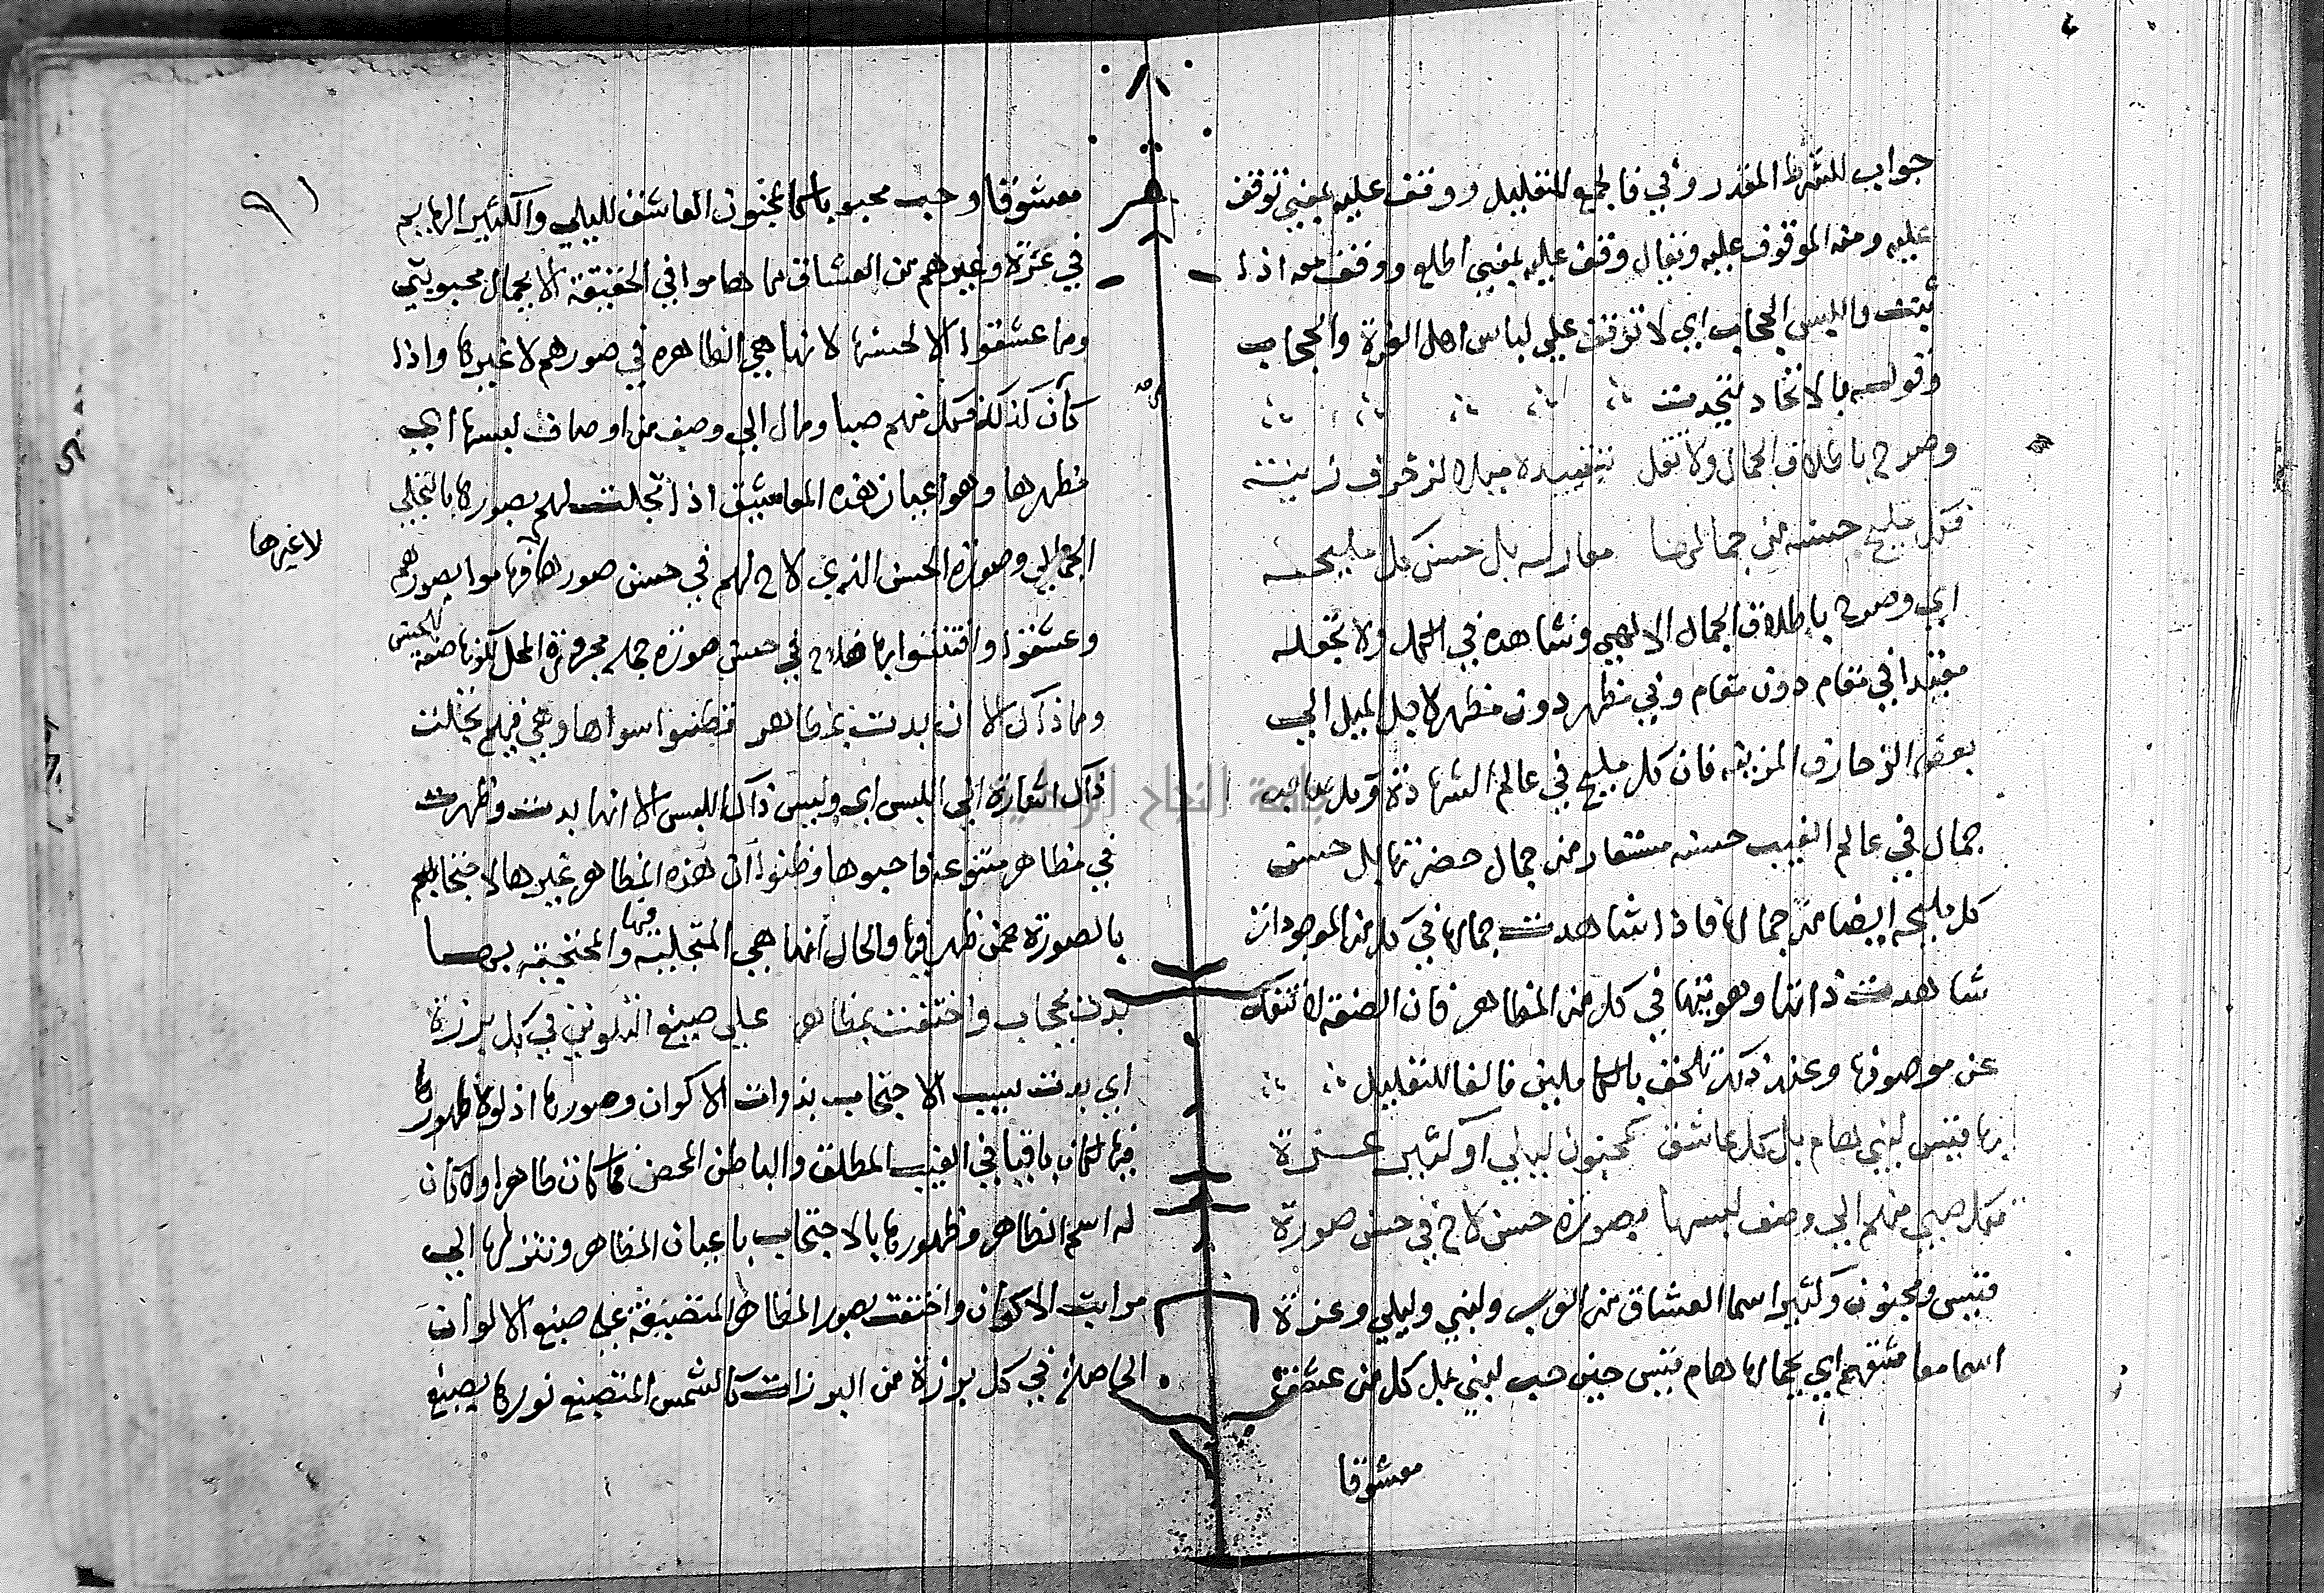 جواب للشرط المقدر وفي فالجمع للتعليل ووقف عليه بمعني توقف
عليه ومنه الموقوف عليه ويقال وقف عليه بمعني اطلع ووقف معه اذا
ثبت واللبس الحجاب اي لا توقف علي لباس اهل الغرة والحجاب
وقوله بالاتحاد تتحدث
وصرح باطلاق الجمال ولا تقل بتقييده ميلا لزخرف زينة
فكل مليح حسنه من جمالها معار له بل حسن كل مليحة
اي وصرح باطلاق الجمال الالهي وشاهده في الكل ولا تجعله
مقيدا في مقام دون مقام وفي مظهر دون مظهر لاجل الميل الي
بعض الزخارف المزينة فان كل مليح في عالم الشهادة وكل صاحب
جمال في عالم الغيب حسنه مستعار من جمال حضرتها بل حسن
كل مليحة ايضا من جمالها فاذا شاهدت جمالها في كل من الموجودات
شاهدت ذاتها وهويتها في كل من المظاهر فان الصفة لا تنفك
عن موصوفها وعند ذلك تلحق بالكاملين فالفا للتعليل
بها قيس لبني هام بل كل عاشق كمجنون ليلي او كثير عزة
فكل صبي منهم الي وصف لبسها بصورة حسن لاح في حسن صورة
قيس ومجنون وكثير اسما العشاق من العرب ولبني وليلي وعزة
اسما معاشقهم اي بجمالها هام قيس حين حب لبني بل كل من عشق
معشوقا
٩١
معشوقا وحب محبوبا كالمجنون العاشق لليلي والكثير الهايم
في عزة وغيرهم من العشاق ما هاموا في الحقيقة الا بجمال محبوبتي
وما عشقوا الا لحسنها لانها هي الظاهرة في صورهم لا غيرها واذا
كان كذلك فكل منهم صبا ومال الي وصف من اوصاف لبسها اي
مظهرها وهو اعيان هذه المعاشيق اذا تجلت لهم بصورها بالتجلي
الجمالي وصورة الحسن الذي لاح لهم في حسن صورها فهاموا بصورهم
لا غيرها
وعشقوا وافتتنوا بها فلاح في حسن صورة جملة مجرورة المحل لكونها صفة لحسن
وما ذاك الا ان بدت بمظاهر فظنوا سواها وهي فيهم تجلت
ذاك اشارة الي اللبس اي وليس ذاك اللبس الا انها بدت وظهرت
في مظاهر متنوعة فاحبوها وظنوا ان هذه المظاهر غيرها لاحتجابهم
بالصورة عمن ظهر فيها والحال انها هي المتجلية فيها والمحتجبة بها
بدت بحجاب واختفت بمظاهر علي صبغ التلوين في كل برزة
اي بدت بسبب الاحتجاب بذوات الاكوان وصورها اذ لولا ظهورها
فيها لكان باقيا في الغيب المطلق والباطن المحض فما كان ظاهرا ولا كان
له اسم الظاهر وظهورها بالاحتجاب باعيان المظاهر وتنزلها الي
مراتب الاكوان واختفت بصور المظاهر المتصبغة علي صبغ الالوان
الحاصلة في كل برزة من البرزات كالشمس المتصبغ نورها بصبغ